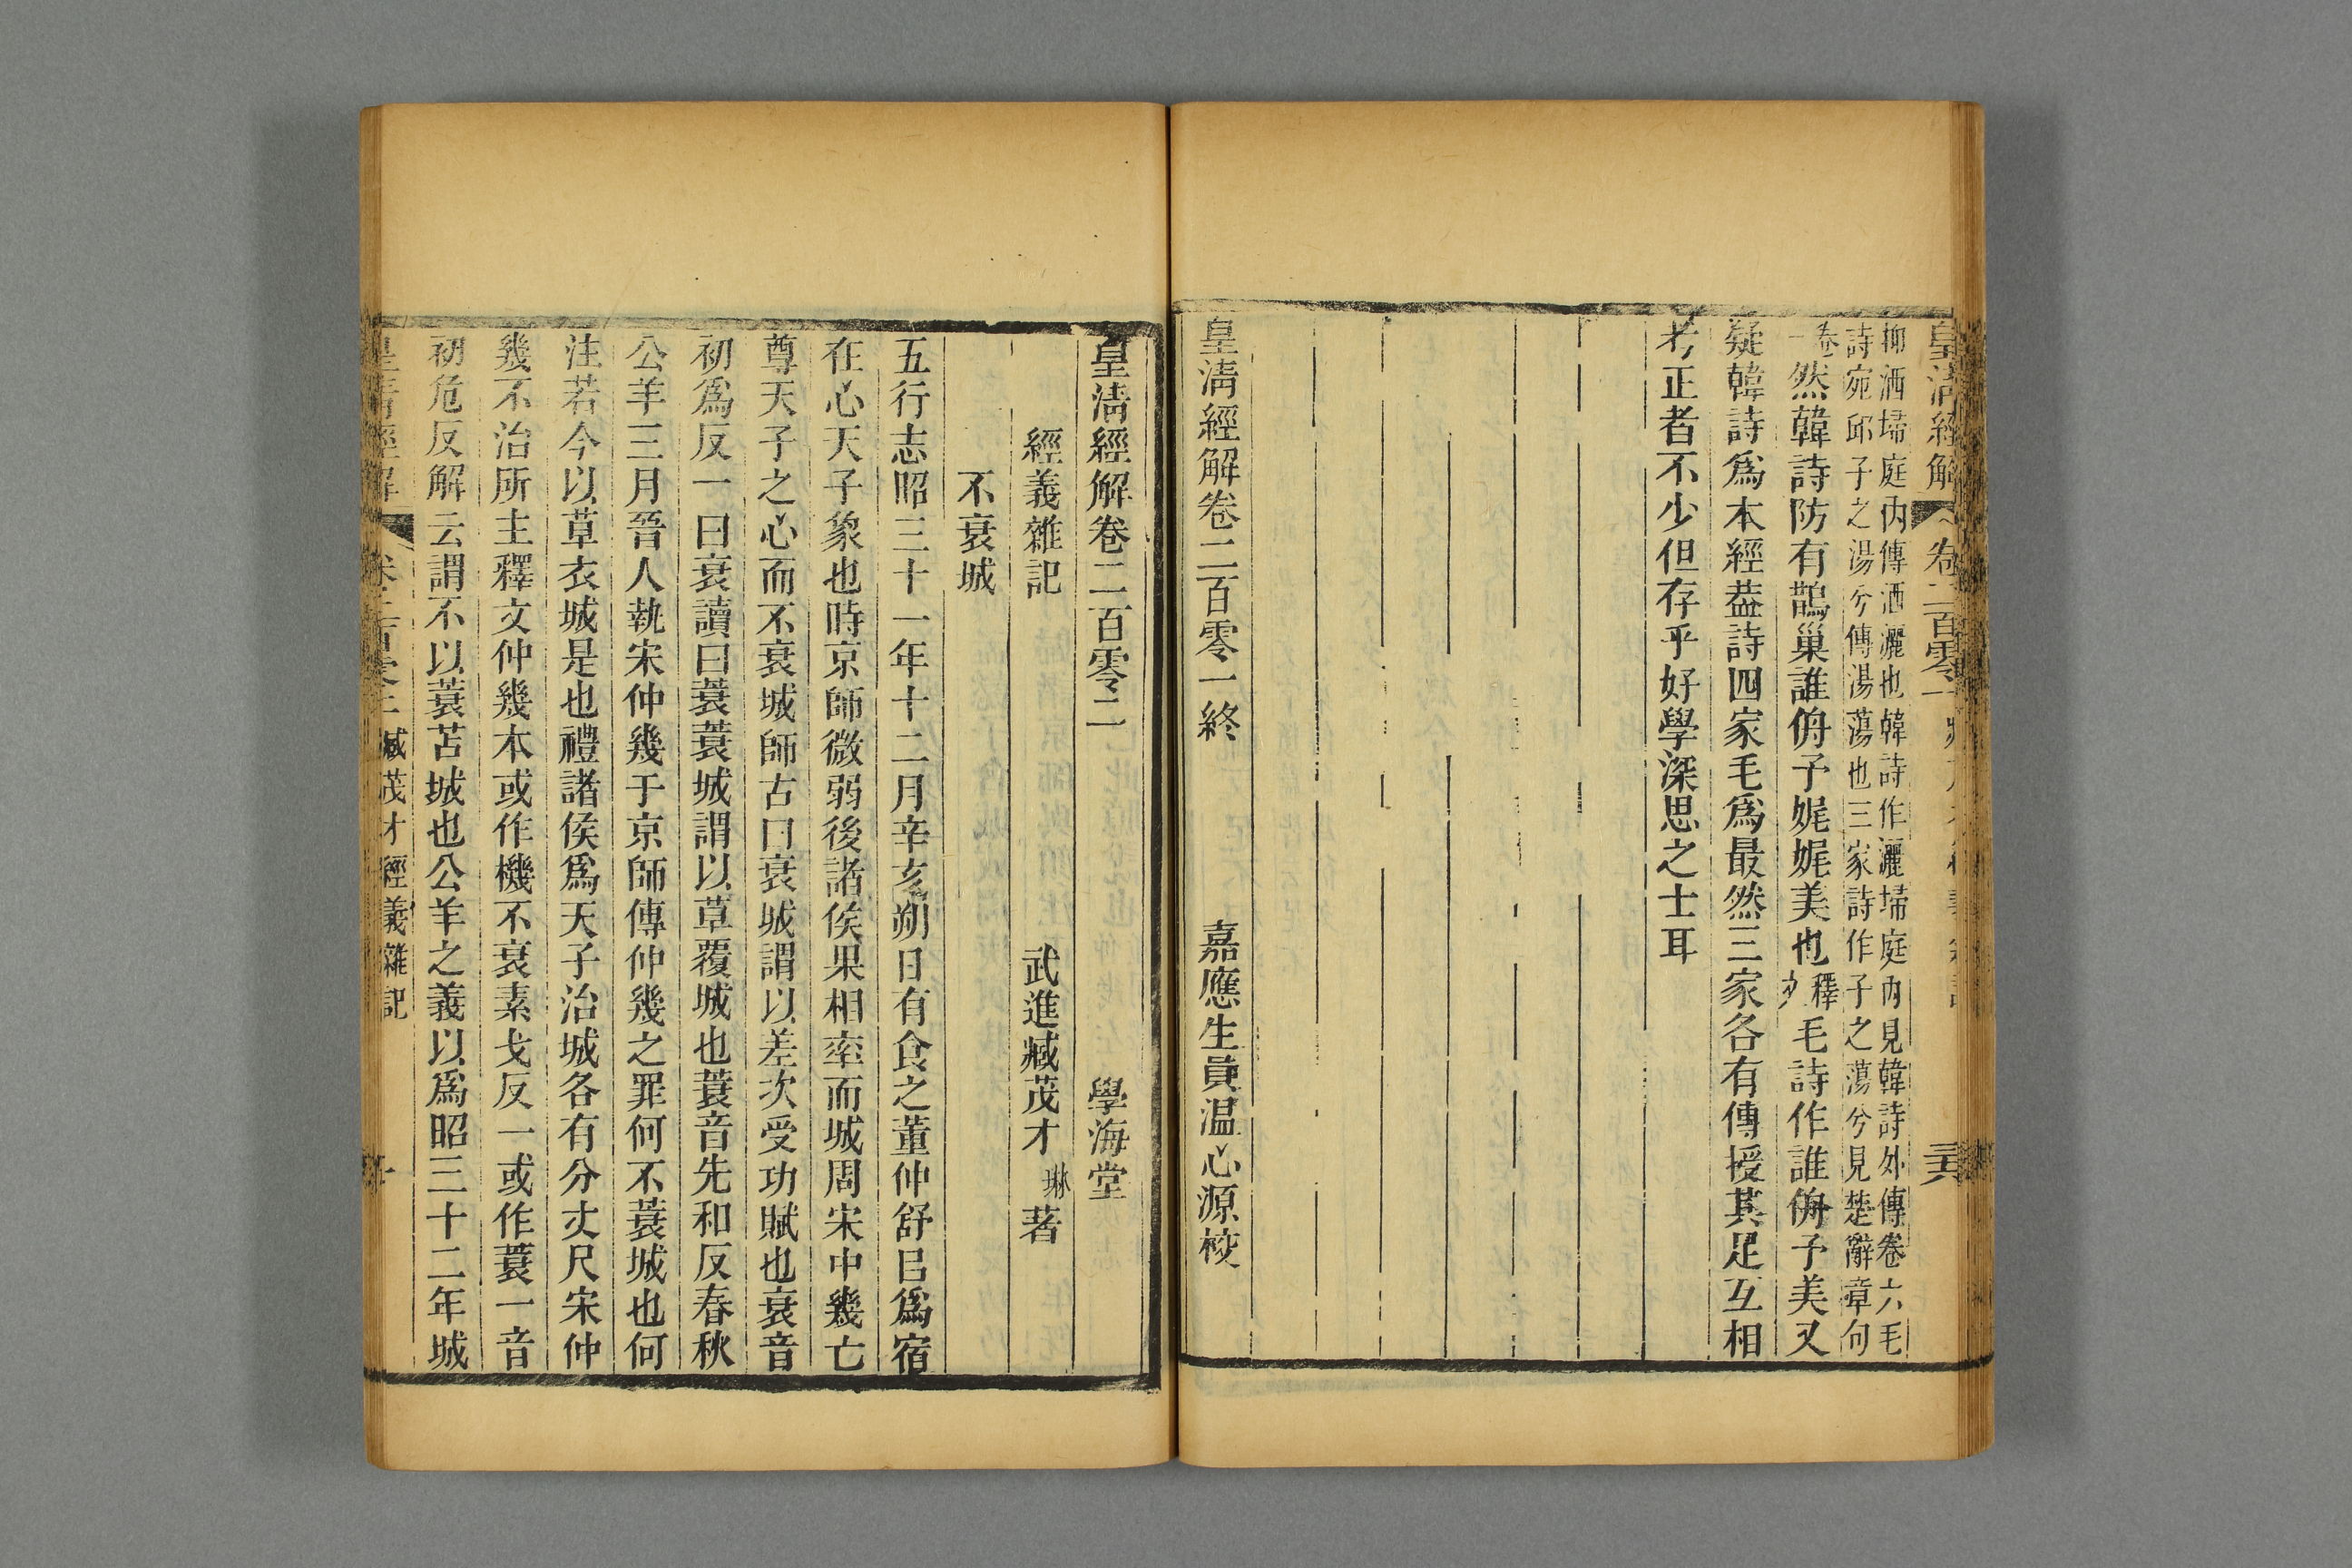 皇清經解 卷二百零一
抑洒埽庭內傳洒灑也韓詩作灑埽庭內見韓詩外傳卷六毛
詩宛邱子之湯兮傳湯蕩也三家詩作子之蕩兮見楚辭章句
卷一然韓詩防有鵲巢誰侜予娓娓美也釋文毛詩作誰侜予美又
疑韓詩爲本經葢詩四家毛爲最然三家各有傳授其足互相
考正者不少但存乎好學深思之士耳
皇淸經解卷二百零一終 嘉應生員温心源校
皇淸經解卷二百零二 學海堂
經義雜記 武進臧茂才琳著
不衰城
五行志昭三十一年十二月辛亥朔日有食之董仲舒㠯爲宿
在心天子象也時京師微弱後諸侯果相率而城周宋中幾亡
尊天子之心而不衰城師古曰衰城謂以差次受功賦也衰音
初爲反一曰衰讀曰蓑蓑城謂以草覆城也蓑音先和反春秋
公羊三月晉人執宋仲幾于京師傳仲幾之罪何不蓑城也何
注若今以草衣城是也禮諸侯爲天子治城各有分丈尺宋仲
幾不治所主釋文仲幾本或作機不衰素戈反一或作蓑一音
初危反解云謂不以蓑苫城也公羊之義以爲昭三十二年城
皇淸經解 卷二百零二 臧茂才經義雜記 一